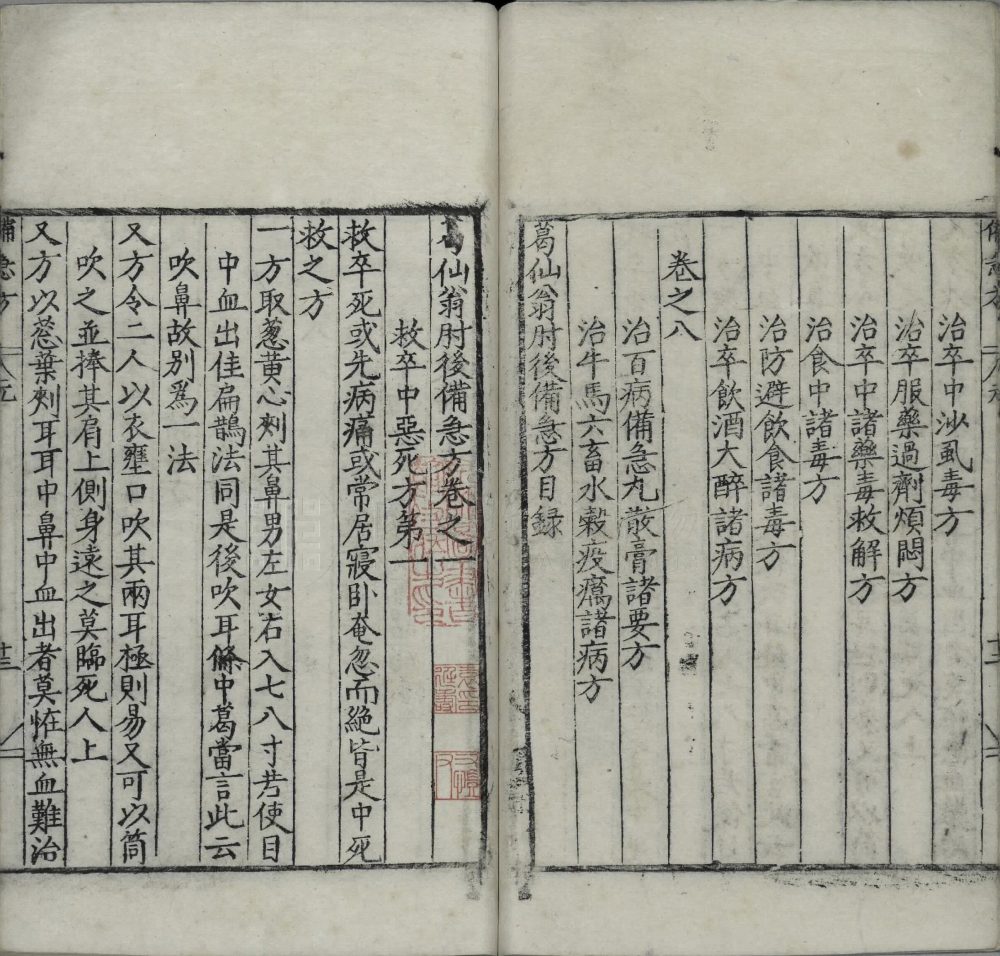 治卒中沙虱毒方
治卒服藥過劑煩悶方
治卒中諸藥毒救解方
治食中諸毒方
治防避飲食諸毒方
治卒飲酒大醉諸病方
卷之八
治百病備急丸散膏諸要方
治牛馬六畜水穀疫癘諸病方
葛仙翁肘後備急方目録
葛仙翁肘後備急方卷之一
救卒中惡死方第一
救卒死或先病痛或常居寢卧奄忽而絶皆是中死
救之方
一方取葱黄心刾其鼻男左女右入七八寸若使目
中血出佳扁鵲法同是後吹耳條中葛當言此云
吹鼻故别爲一法
又方令二人以衣壅口吹其兩耳極則易又可以筒
吹之並捧其肩上側身遠之莫臨死人上
又方以葱葉刾耳耳中鼻中血出者莫恠無血難治